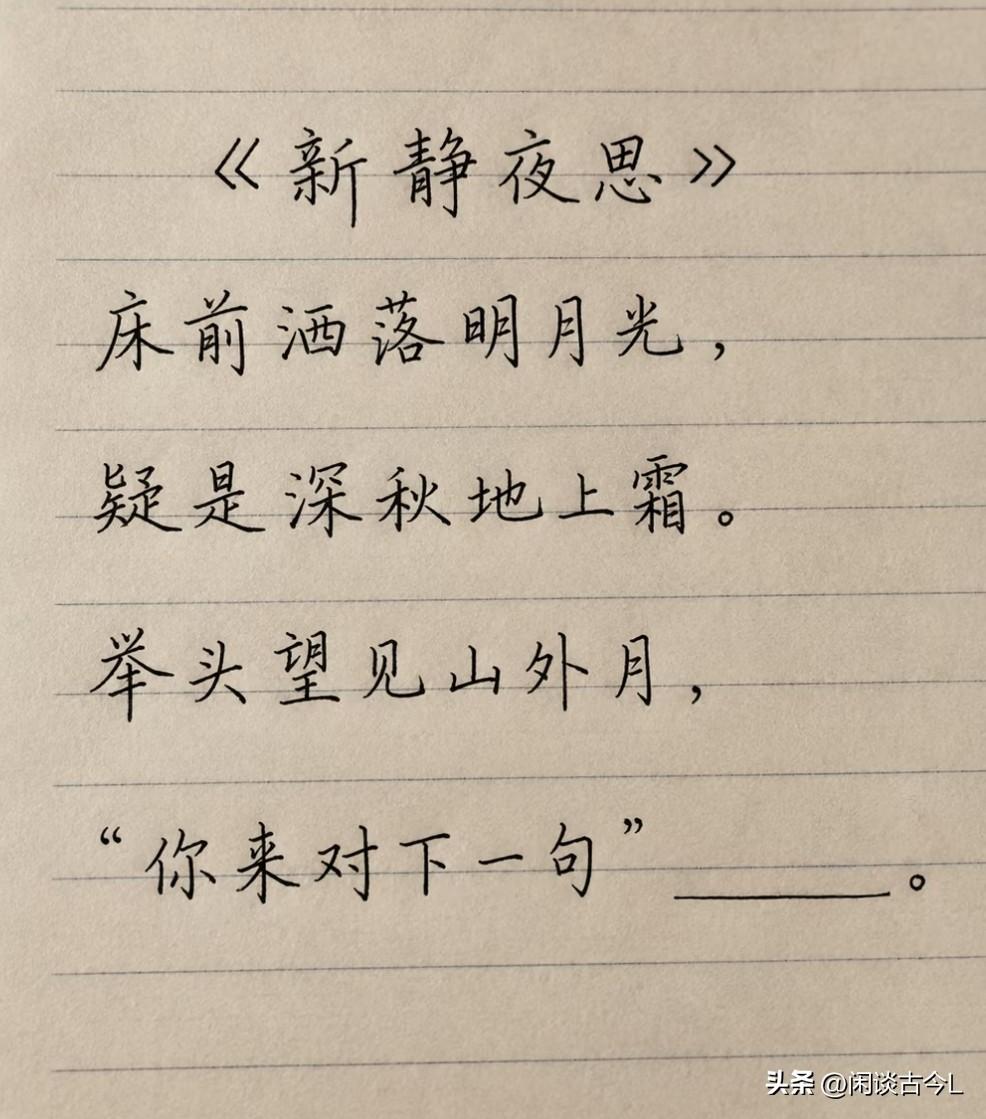 《新静夜思》
床前洒落明月光，
疑是深秋地上霜。
举头望见山外月，
“你来对下一句”______。
头条 @闲谈古今L